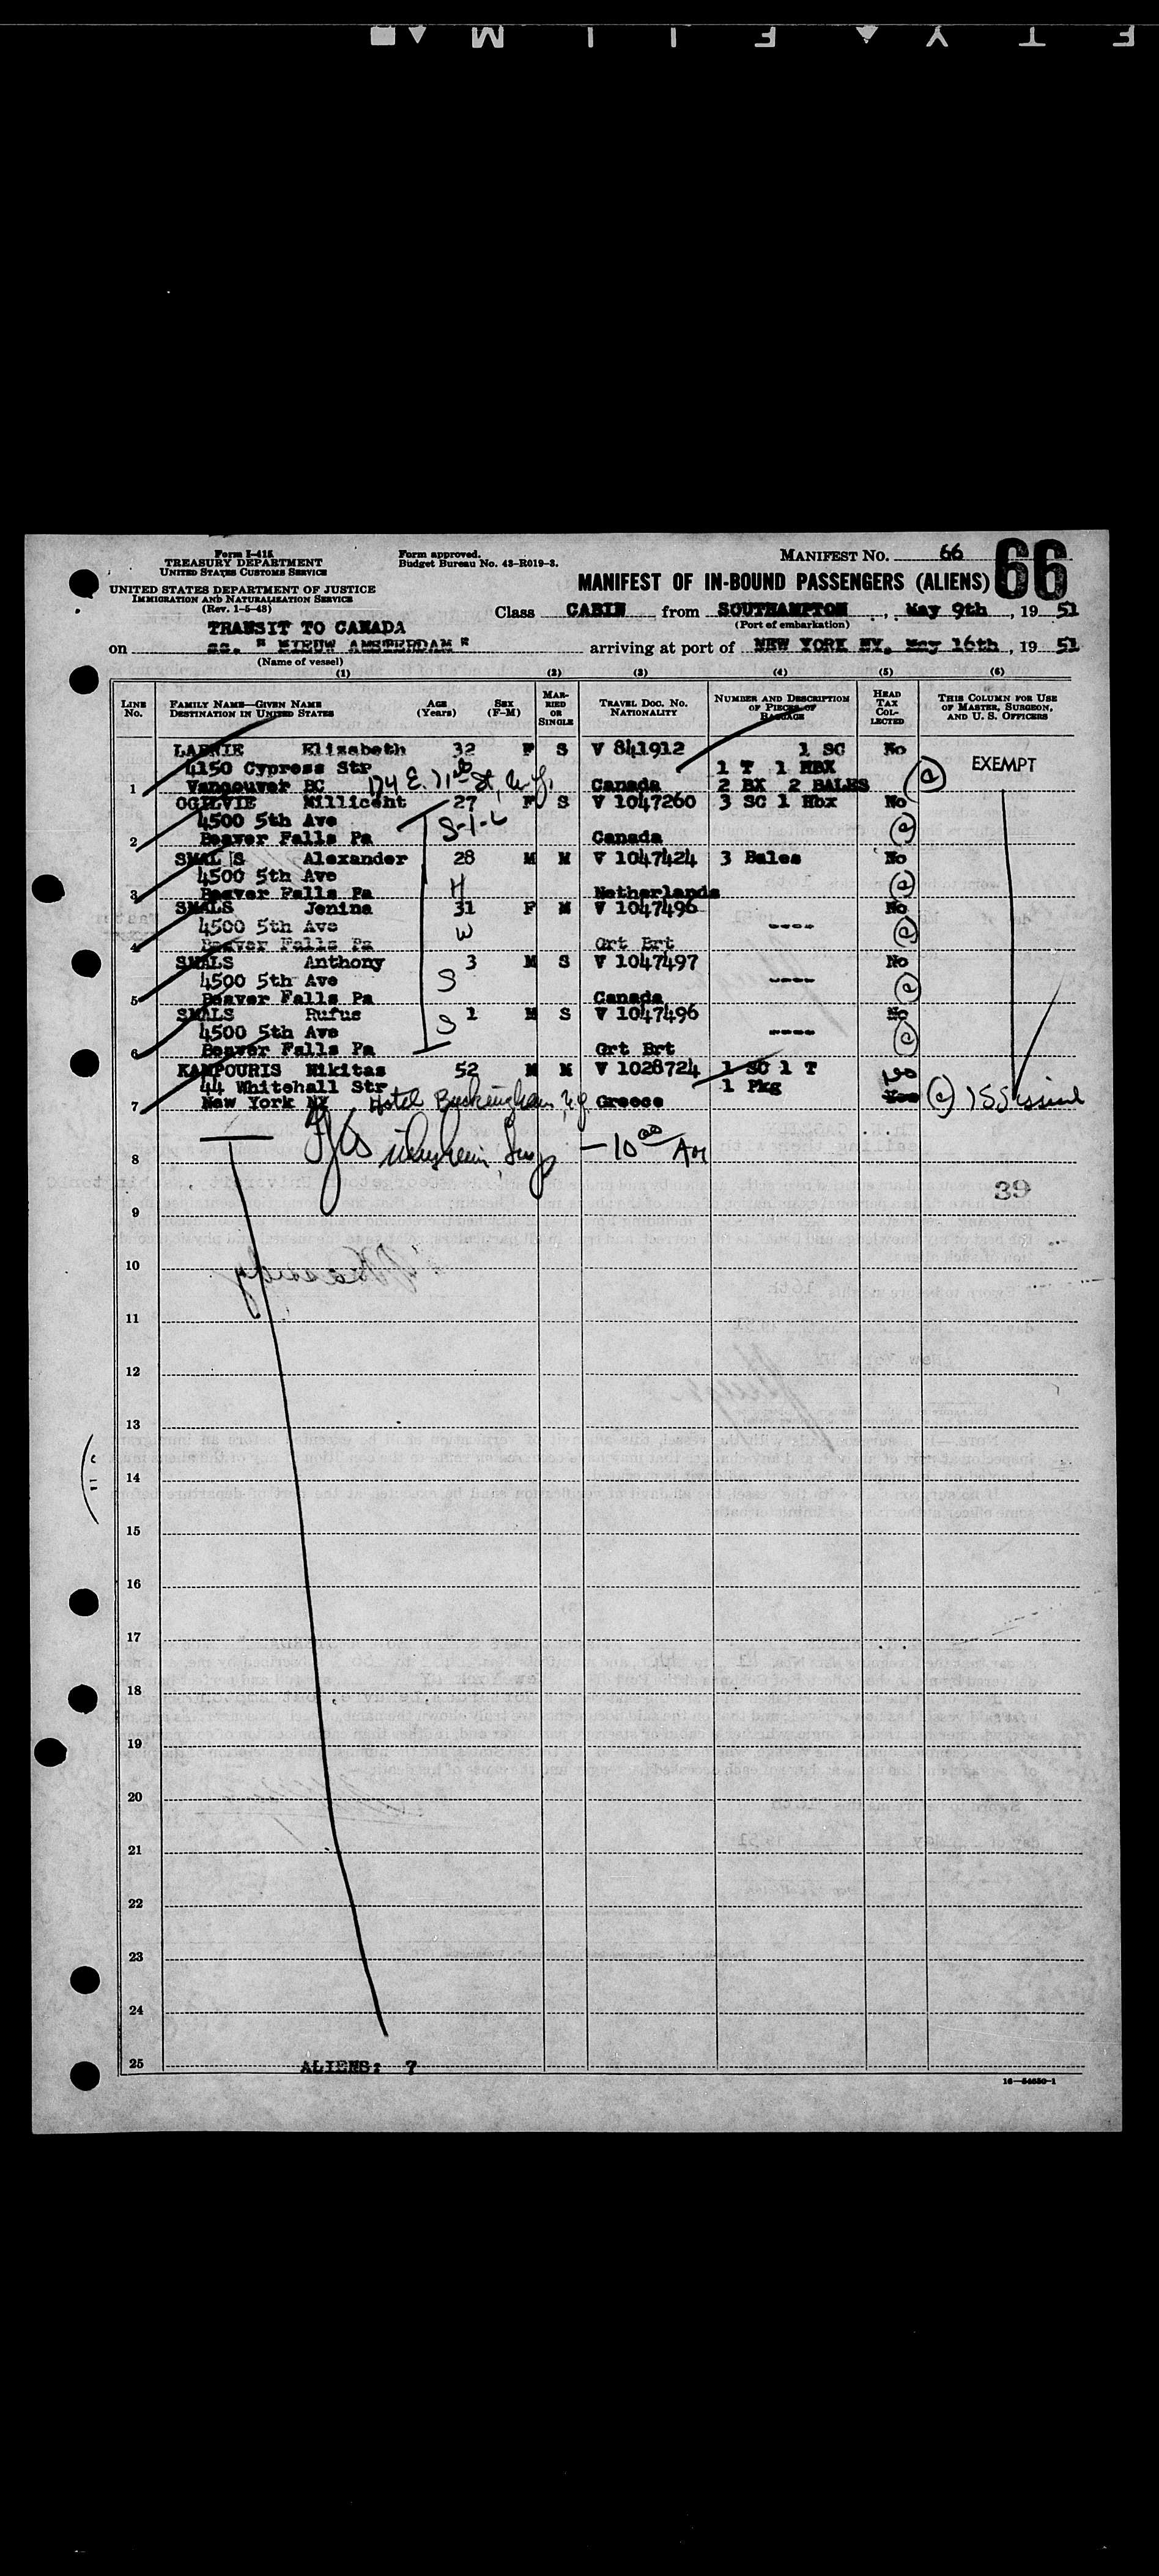 Form I-415
TREASURY DEPARTMENT
UNITED STATES CUSTOMS SERVICE
UNITED STATES DEPARTMENT OF JUSTICE
IMMIGRATION AND NATURALIZATION SERVICE
(Rev. 1-5-48)
Form approved.
Budget Bureau No. 43-R019-3.
MANIFEST NO. 66
66
MANIFEST OF IN-BOUND PASSENGERS (ALIENS)
Class CABIN from SOUTHAMPTON, May 9th, 1951
(Port of embarkation)
TRANSIT TO CANADA
on ss. " NIEUW AMSTERDAM " arriving at port of NEW YORK NY, May 16th, 1951
(Name of vessel)
(1) (2) (3) (4) (5) (6)
LINE No. FAMILY NAME—GIVEN NAME DESTINATION IN UNITED STATES AGE (Years) SEX (F-M) MARRIED OR SINGLE TRAVEL DOC. NO. NATIONALITY NUMBER AND DESCRIPTION OF PIECES OF BAGGAGE HEAD TAX COLLECTED THIS COLUMN FOR USE OF MASTER, SURGEON, AND U. S. OFFICERS
Elizabeth 32 F S V 841912 1 SC No
4150 Cypress Str 1 T 1 HBX EXEMPT
1 Vancouver BC 174 E. 71st St, N.Y. Canada 2 BX 2 BALES
OGILVIE Millicent 27 F S V 1047260 3 SC 1 Hbx No
4500 5th Ave
2 Beaver Falls Pa Canada
SMALS Alexander 28 M M V 1047424 3 Bales No
4500 5th Ave H
3 Beaver Falls Pa Netherlands
SMALS Jenina 31 F M V 1047496 No
4500 5th Ave W ----
4 Beaver Falls Pa Grt Brt
SMALS Anthony 3 M S V 1047497 No
4500 5th Ave S ----
5 Beaver Falls Pa Canada
SMALS Rufus 1 M S V 1047496 No
4500 5th Ave S ----
6 Beaver Falls Pa Grt Brt
KAMPOURIS Nikitas 52 M M V 1028724 1 SC 1 T
44 Whitehall Str 1 Pkg Yes
7 New York NY Hotel Buckingham, N.Y. Greece
8 — 10 00 AM
39
9
10
11
12
13
14
15
16
17
18
19
20
21
22
23
24
25 ALIENS: 7